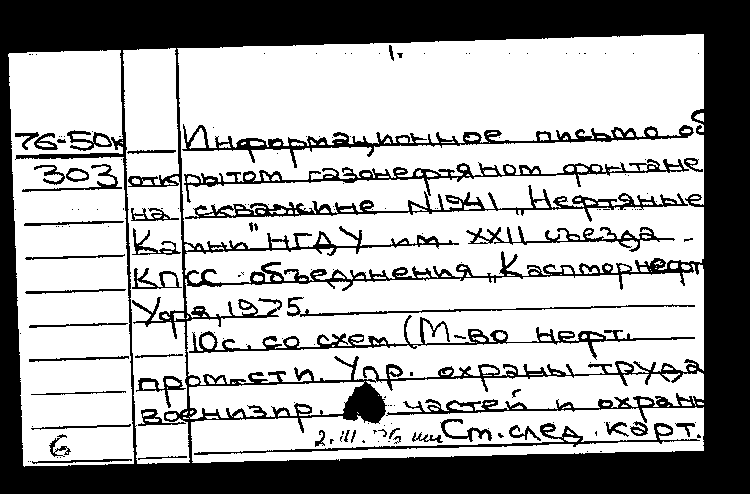 1.
76-50к Информационное письмо об
303 открытом газонефтяном фонтане
на скважине N1941 „Нефтяные
Камни" НГДУ им. XXII съезда
КПСС объединения „Каспморнефт
Уфа, 1975.
10с. со схем. (М-во нефт.
пром-сти. Упр. охраны труда
военизир. частей и охраны
6 2.III.76 Ст. след. карт.